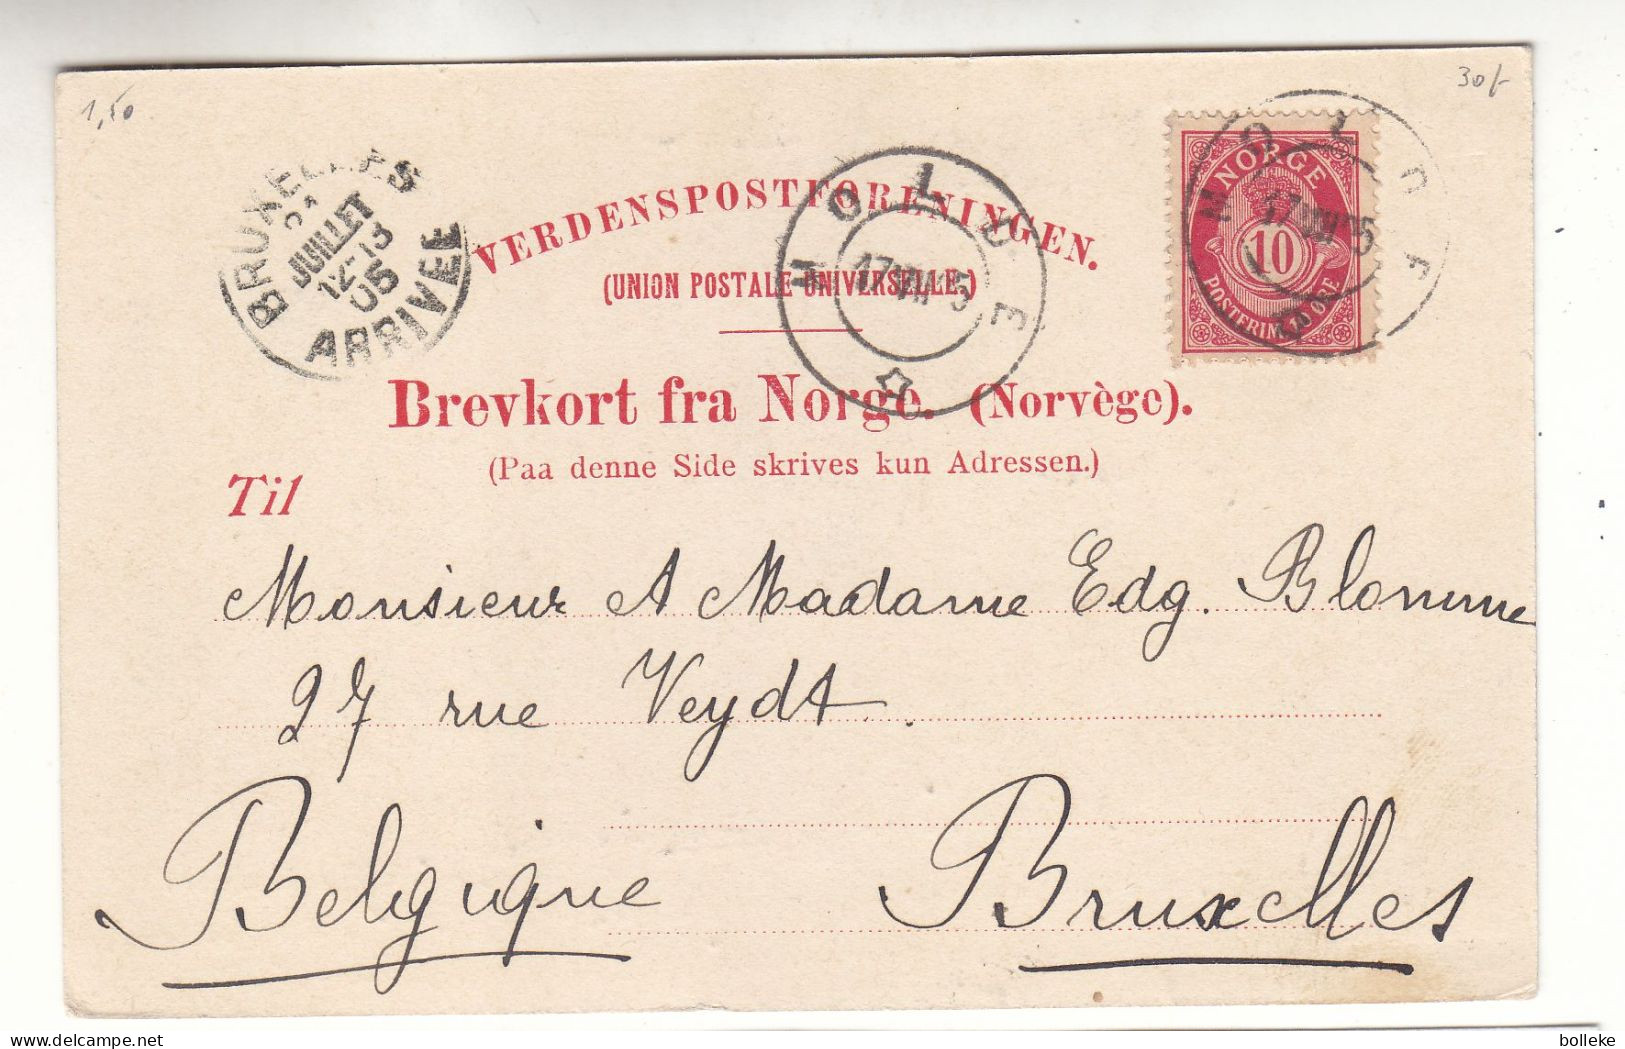 1,50
30/-
BRUXELLES
21
JUILLET
12-13
05
ARRIVEE
VERDENSPOSTFORENINGEN.
(UNION POSTALE UNIVERSELLE.)
MOLDE
17 VII 05
NORGE
10
POSTFRIM. 10 ØRE
MOLDE
17 VII 05
Brevkort fra Norge. (Norvège).
(Paa denne Side skrives kun Adressen.)
Til
Monsieur et Madame Edg. Blomme
27 rue Veydt.
Belgique Bruxelles
bolleke